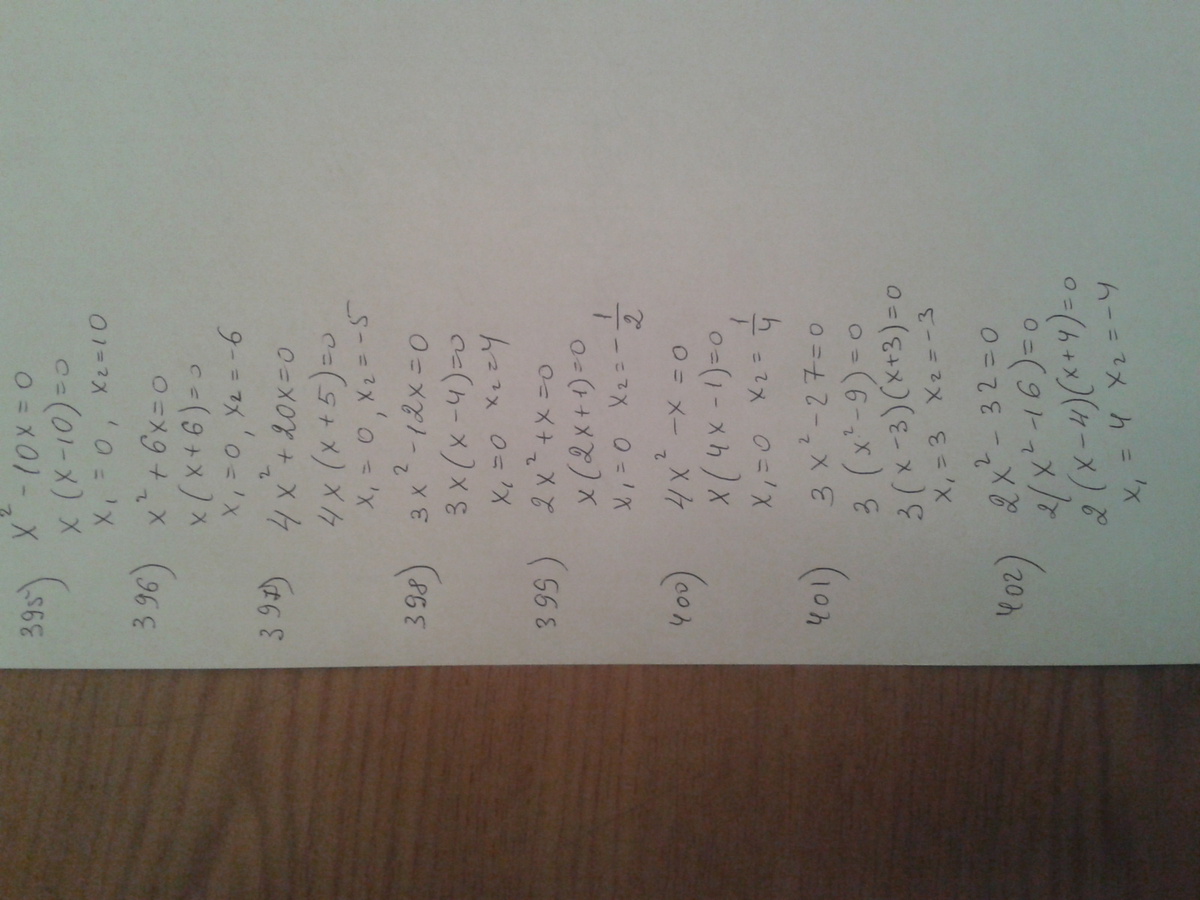 395) x² - 10x = 0
x(x-10)=0
x₁ = 0, x₂=10
396) x² + 6x=0
x(x+6)=0
x₁=0, x₂=-6
397) 4x² + 20x=0
4x(x+5)=0
x₁=0, x₂=-5
398) 3x² - 12x=0
3x(x-4)=0
x₁=0 x₂=4
399) 2x²+x=0
x(2x+1)=0
x₁=0 x₂=-1/2
400) 4x² - x = 0
x(4x-1)=0
x₁=0 x₂=1/4
401) 3x²-27=0
3(x²-9)=0
3(x-3)(x+3)=0
x₁=3 x₂=-3
402) 2x² - 32=0
2(x²-16)=0
2(x-4)(x+4)=0
x₁=4 x₂=-4